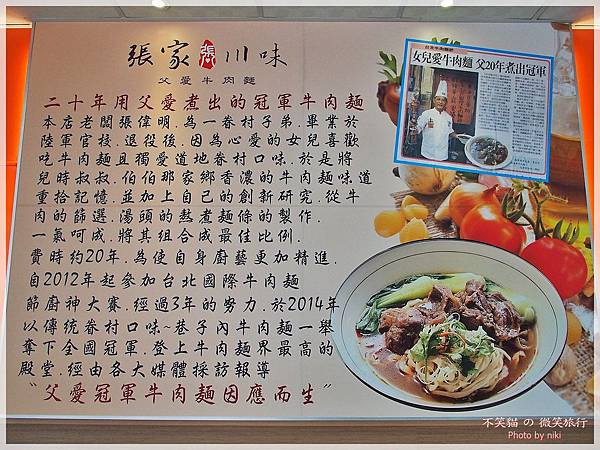 張家張川味
父愛牛肉麵
二十年用父愛煮出的冠軍牛肉麵
本店老闆張偉明.為一眷村子弟.畢業於
陸軍官校.退役後.因為心愛的女兒喜歡
吃牛肉麵且獨愛道地眷村口味.於是將
兒時叔叔.伯伯那家鄉香濃的牛肉麵味道
重拾記憶.並加上自己的創新研究.從牛
肉的篩選.湯頭的熬煮麵條的製作.
一氣呵成.將其組合成最佳比例.
費時約20年.為使自身廚藝更加精進.
自2012年起參加台北國際牛肉麵
節廚神大賽.經過3年的努力.於2014年
以傳統眷村口味~巷子內牛肉麵一舉
奪下全國冠軍.登上牛肉麵界最高的
殿堂.經由各大媒體採訪報導
"父愛冠軍牛肉麵因應而生"
女兒愛牛肉麵 父20年煮出冠軍
不笑貓 の 微笑旅行
Photo by niki